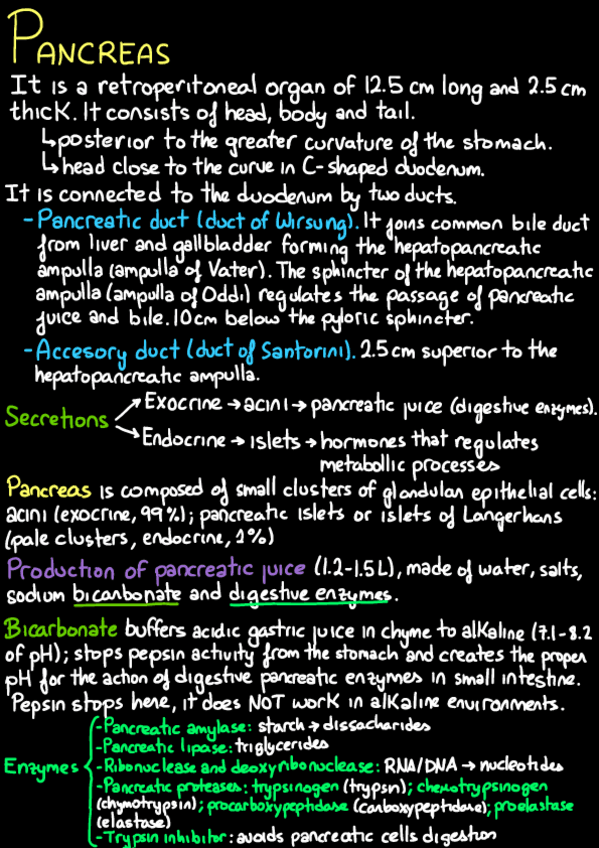 PANCREAS
It is a retroperitoneal organ of 12.5 cm long and 2.5 cm
thick. It consists of head, body and tail.
↳posterior to the greater curvature of the stomach.
↳head close to the curve in C-shaped duodenum.
It is connected to the duodenum by two ducts.
-Pancreatic duct (duct of Wirsung). It joins common bile duct
from liver and gallbladder forming the hepatopancreatic
ampulla (ampulla of Vater). The sphincter of the hepatopancreatic
ampulla (ampulla of Oddi) regulates the passage of pancreatic
juice and bile. 10cm below the pyloric sphincter.
-Accesory duct (duct of Santorini). 2.5 cm superior to the
hepatopancreatic ampulla.
Secretions
Exocrine → acini → pancreatic juice (digestive enzymes).
Endocrine → islets → hormones that regulates
metabollic processes
Pancreas is composed of small clusters of glandular epithelial cells:
acini (exocrine, 99%); pancreatic islets or islets of Langerhans
(pale clusters, endocrine, 1%)
Production of pancreatic juice (1.2-1.5L), made of water, salts,
sodium bicarbonate and digestive enzymes.
Bicarbonate buffers acidic gastric juice in chyme to alkaline (7.1-8.2
of pH); stops pepsin activity from the stomach and creates the proper
pH for the action of digestive pancreatic enzymes in small intestine.
Pepsin stops here, it does NOT work in alkaline environments.
Enzymes
-Pancreatic amylase: starch → dissacharides
-Pancreatic lipase: triglycerides
-Ribonuclease and deoxyribonuclease: RNA/DNA → nucleotides
-Pancreatic proteases: trypsinogen (trypsin); chemotrypsinogen
(chymotrypsin); procarboxypeptidase (carboxypeptidase); proelastase
(elastase)
-Trypsin inhibitor: avoids pancreatic cells digestion